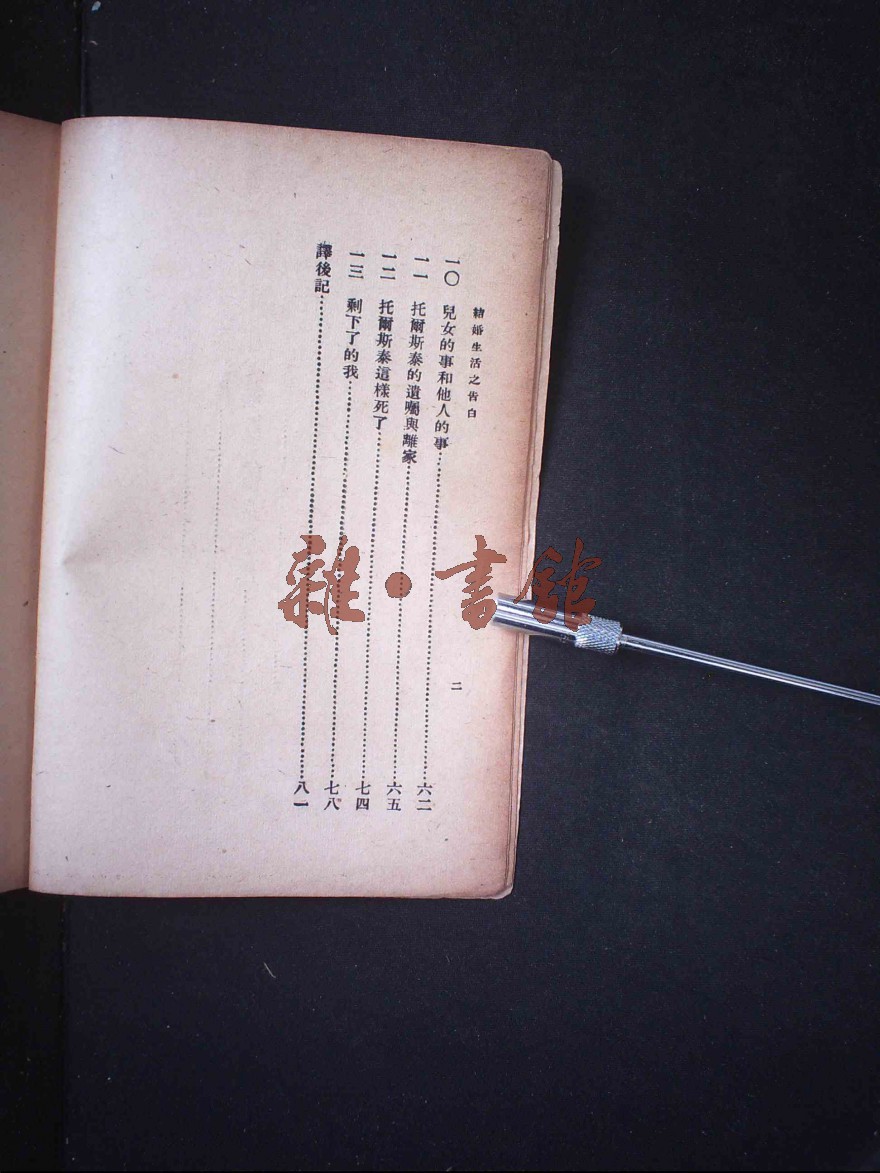 結婚生活之告白
二
一〇 兒女的事和他人的事……六二
一一 托爾斯泰的遺囑與離家……六五
一二 托爾斯泰這樣死了……七四
一三 剩下了的我……七八
譯後記……八一
雜·書館